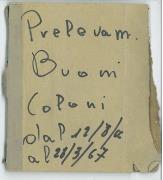 Prelevam.
Buoni
Coloni
dal 12/8/66
al 28/3/67